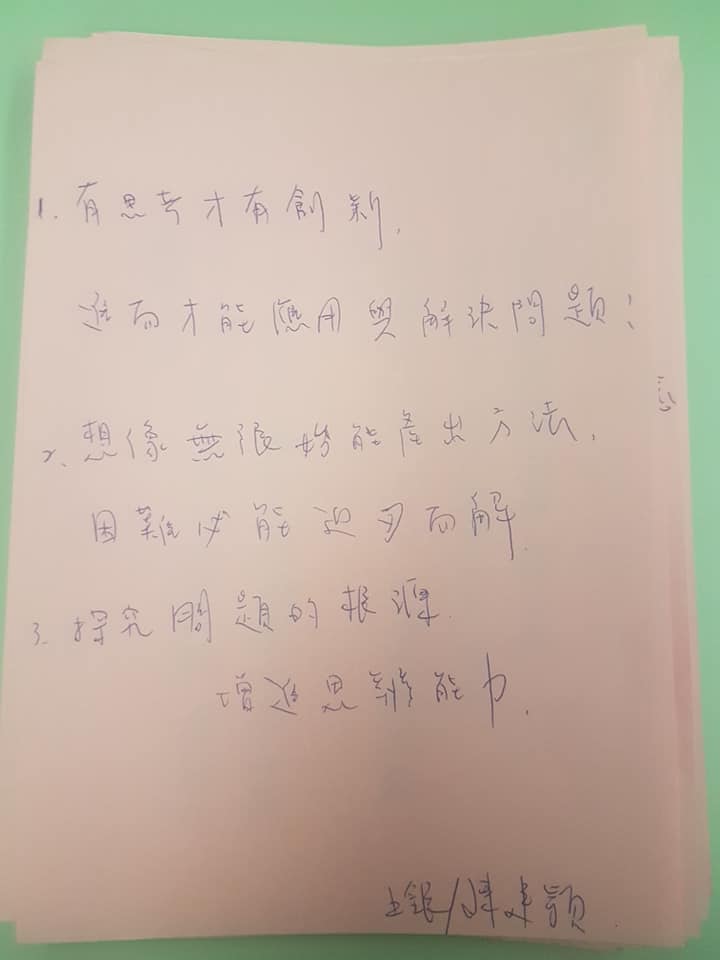 1. 有思考才有創新,
進而才能應用與解決問題;
2. 想像無限始能產出方法,
困難必能迎刃而解.
3. 探究問題的根源.
增進思辨能力.
土銀/陳建穎.